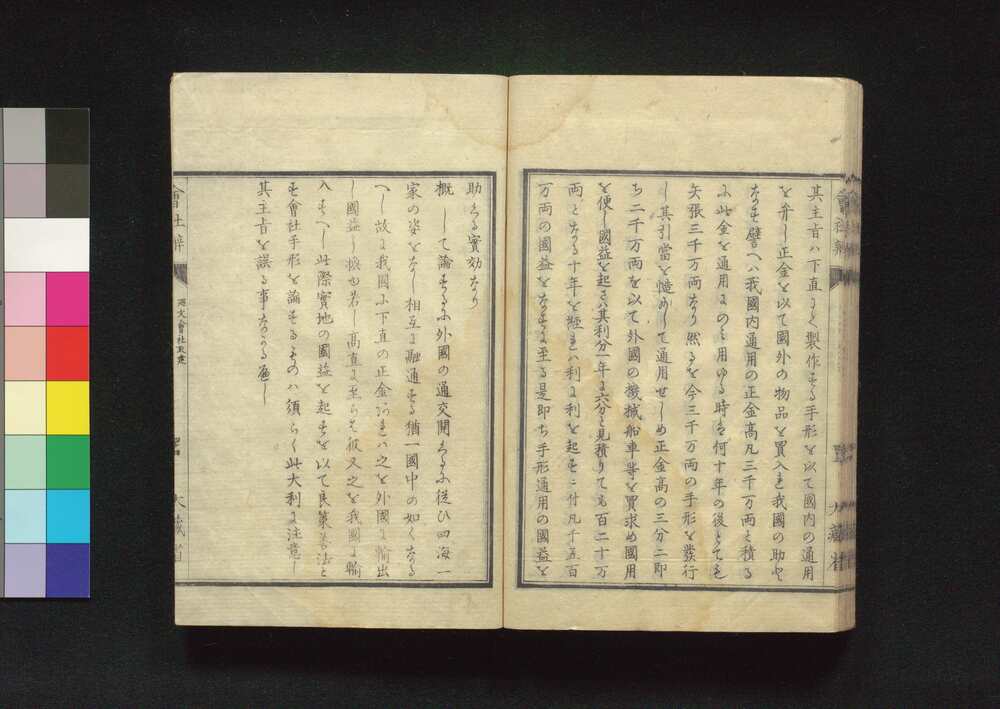 其主旨ハ下直なる製作する手形を以て國内の通用
を弁し正金を以て國外の物品を買入き我國の助と
なす譬へハ我國内通用の正金高凡三千万両と積る
に此金を通用にのミ用ゆる時は何十年の後とても
矢張三千万両なり然るを今三千万両の手形を發行
し其引當を慥にして通用せしめ正金高の三分二即
ち二千万両を以て外國の機械船車等を買求め國用
を便し國益を起さハ其利分一年に六分と見積りても百二十万
両となる十年を経れハ利に利を起すに付凡千五百
万両の國益をなすに至る是即ち手形通用の國益を
會社辨
大藏省
助くる實効なり
概して論するに外國の通交開るに従ひ四海一
家の姿をなし相互に融通する猶一國中の如くなる
へし故に我國に下直の正金あれハ之を外國に輸出
し國益を
若し高直に至らは彼又之を我國に輸
入すへし此際實地の國益を起すを以て良策善法と
す會社手形を論するものハ須らく此大利に注意し
其主旨を誤る事なかるへし
會社辨
大藏省